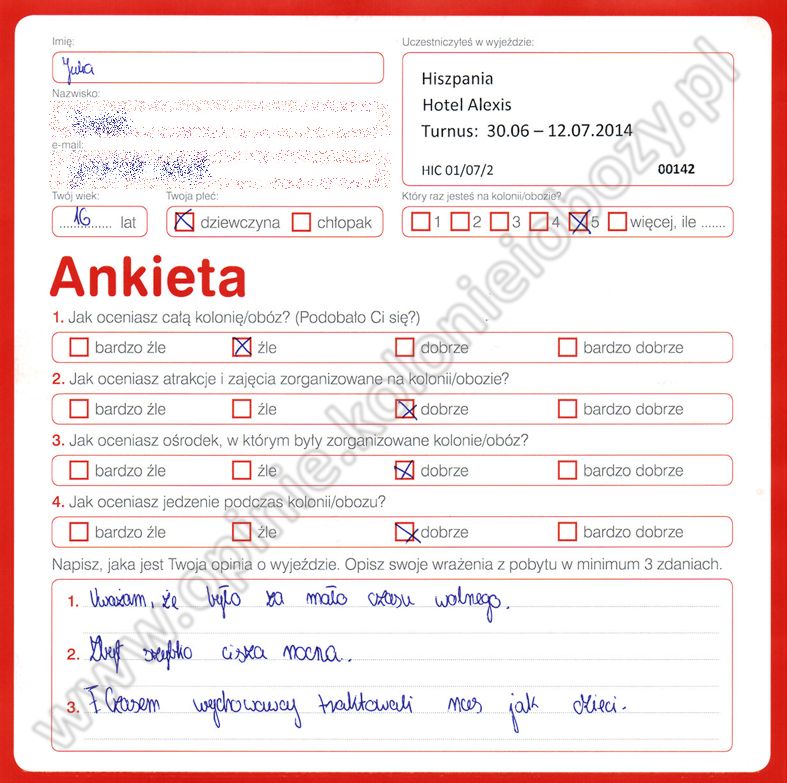 Imię:
Uczestniczyłeś w wyjeździe:
Julia
Hiszpania
Hotel Alexis
Turnus: 30.06 – 12.07.2014
HIC 01/07/2 00142
Nazwisko:
e-mail:
Twój wiek:
Twoja płeć:
Który raz jesteś na kolonii/obozie?
16 lat
dziewczyna chłopak
1 2 3 4 5 więcej, ile .......
Ankieta
1. Jak oceniasz całą kolonię/obóz? (Podobało Ci się?)
bardzo źle źle dobrze bardzo dobrze
2. Jak oceniasz atrakcje i zajęcia zorganizowane na kolonii/obozie?
bardzo źle źle dobrze bardzo dobrze
3. Jak oceniasz ośrodek, w którym były zorganizowane kolonie/obóz?
bardzo źle źle dobrze bardzo dobrze
4. Jak oceniasz jedzenie podczas kolonii/obozu?
bardzo źle źle dobrze bardzo dobrze
Napisz, jaka jest Twoja opinia o wyjeździe. Opisz swoje wrażenia z pobytu w minimum 3 zdaniach.
1. Uważam, że było za mało czasu wolnego.
2. Zbyt szybko cisza nocna.
3. Czasem wychowawcy traktowali nas jak dzieci.
www.opinie.kolonieiobozy.pl